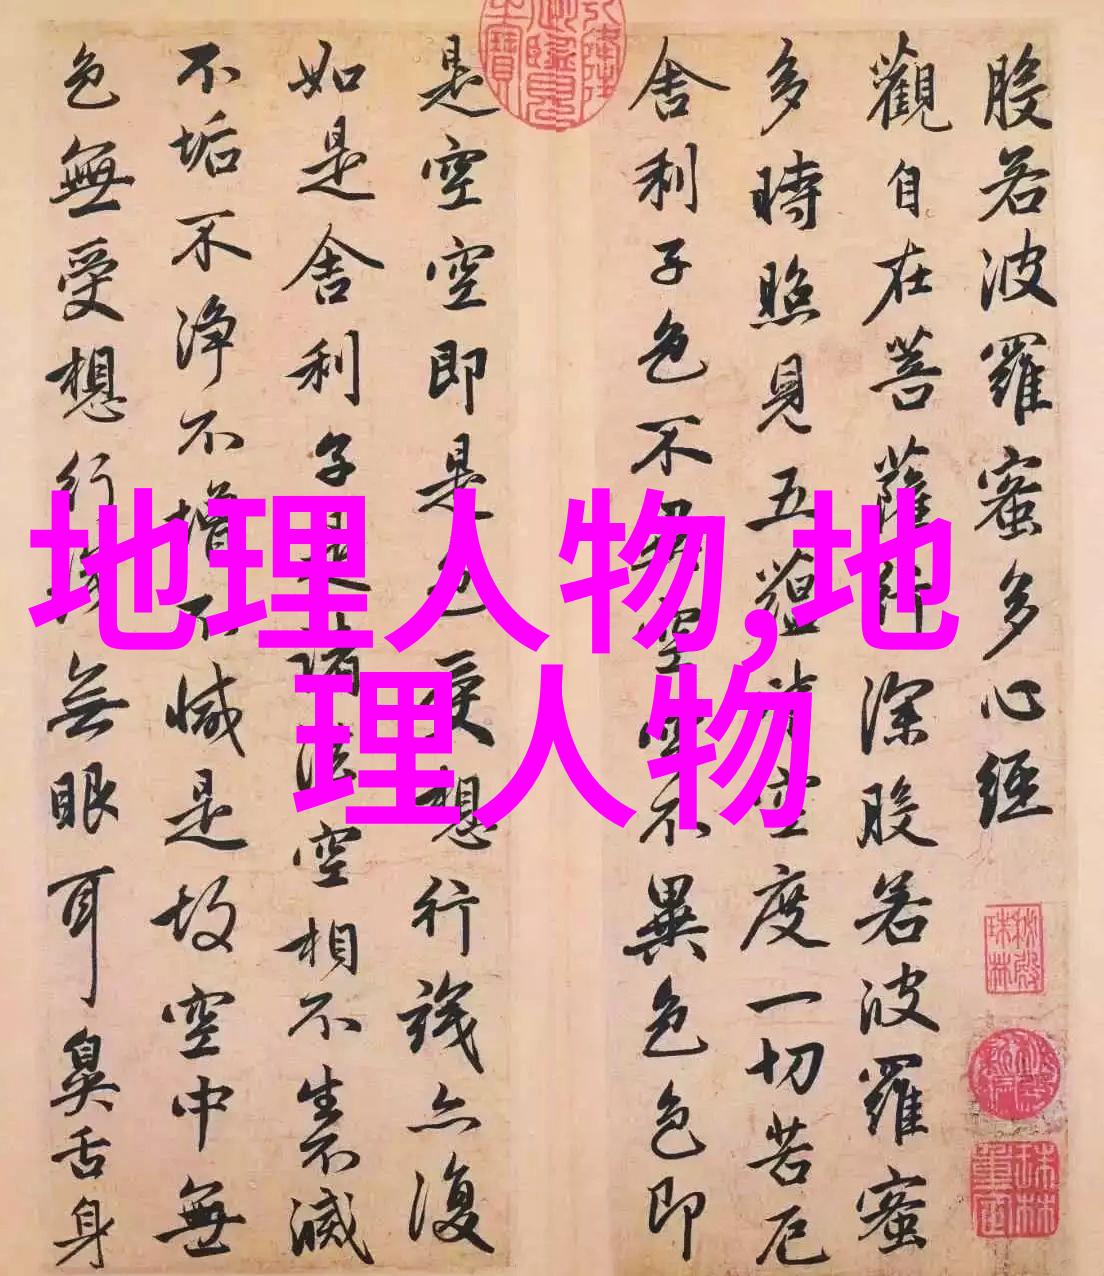 般若波羅蜜多心經
觀自在菩薩行深般若波羅蜜
多時照見五蘊皆空度一切苦厄
舍利子色不異空空不異色色即
是空空即是色受想行識亦復
如是舍利子是諸法空相不生不滅
不垢不净不增不減是故空中無
色無受想行識無眼耳鼻舌身
秘殿珠林
地理人物,地
理人物